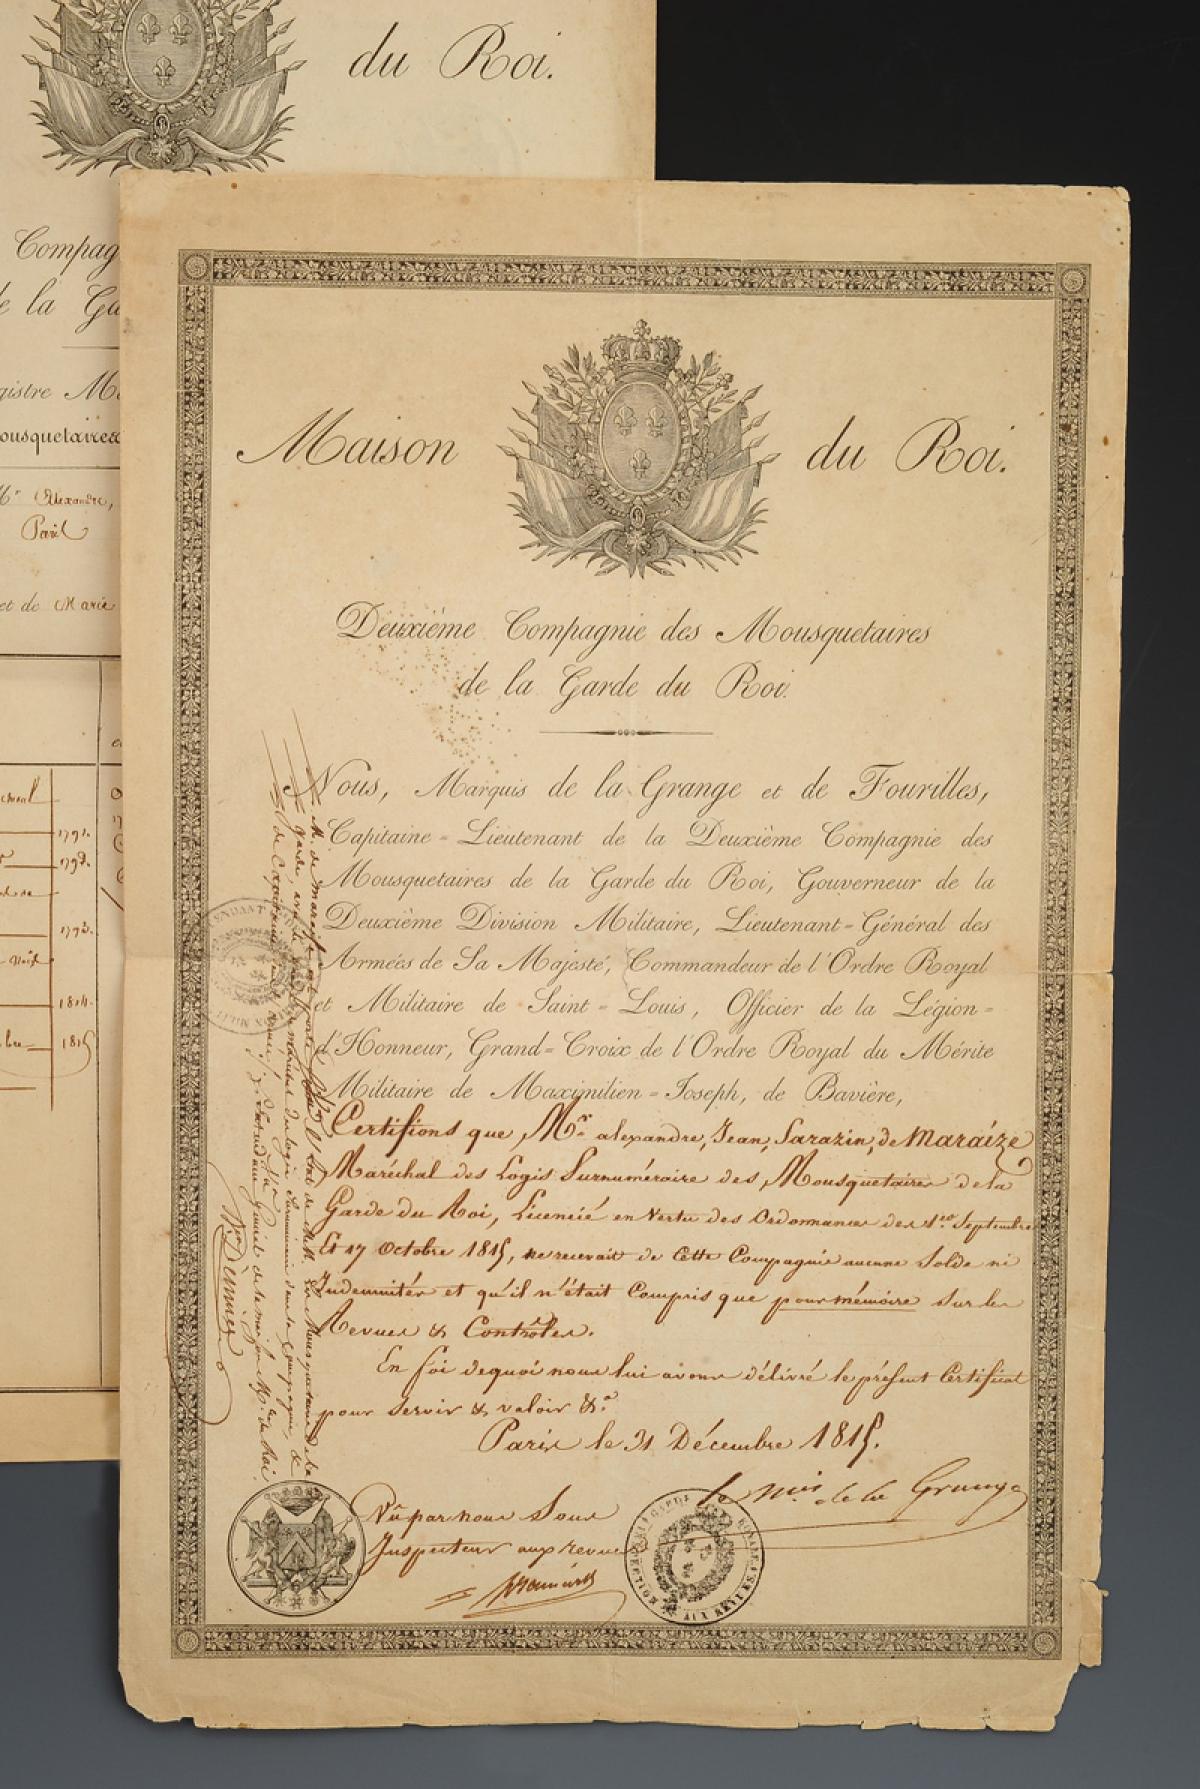 du Roi.
Compag
de la Ga
gistre M
ousquetaires
Mr Alexandre,
Paris
et de Marie
1791.
1793.
1793.
1814.
1815
Maison du Roi.
Deuxième Compagnie des Mousquetaires
de la Garde du Roi.
Nous, Marquis de la Grange et de Fourilles,
Capitaine-Lieutenant de la Deuxième Compagnie des
Mousquetaires de la Garde du Roi, Gouverneur de la
Deuxième Division Militaire, Lieutenant-Général des
Armées de Sa Majesté, Commandeur de l'Ordre Royal
et Militaire de Saint-Louis, Officier de la Légion-
d'Honneur, Grand-Croix de l'Ordre Royal du Mérite
Militaire de Maximilien-Joseph, de Bavière,
Certifions que Mr. alexandre, Jean, Sarazin, de Maraize
Maréchal des Logis Surnuméraire des Mousquetaires de la
Garde du Roi, Licencié en Vertu des Ordonnances des 1er Septembre
Et 17 Octobre 1815, ne recevait de Cette Compagnie aucune Solde ni
Indemnités et qu'il n'était Compris que pour mémoire sur les
Revues & Contrôles.
En foi de quoi nous lui avons délivré le présent Certificat
pour servir & valoir &a
Paris le 31 Décembre 1815.
le Mis de la Grange
Vu par nous Sous
Inspecteur aux revues
AUX REVUES